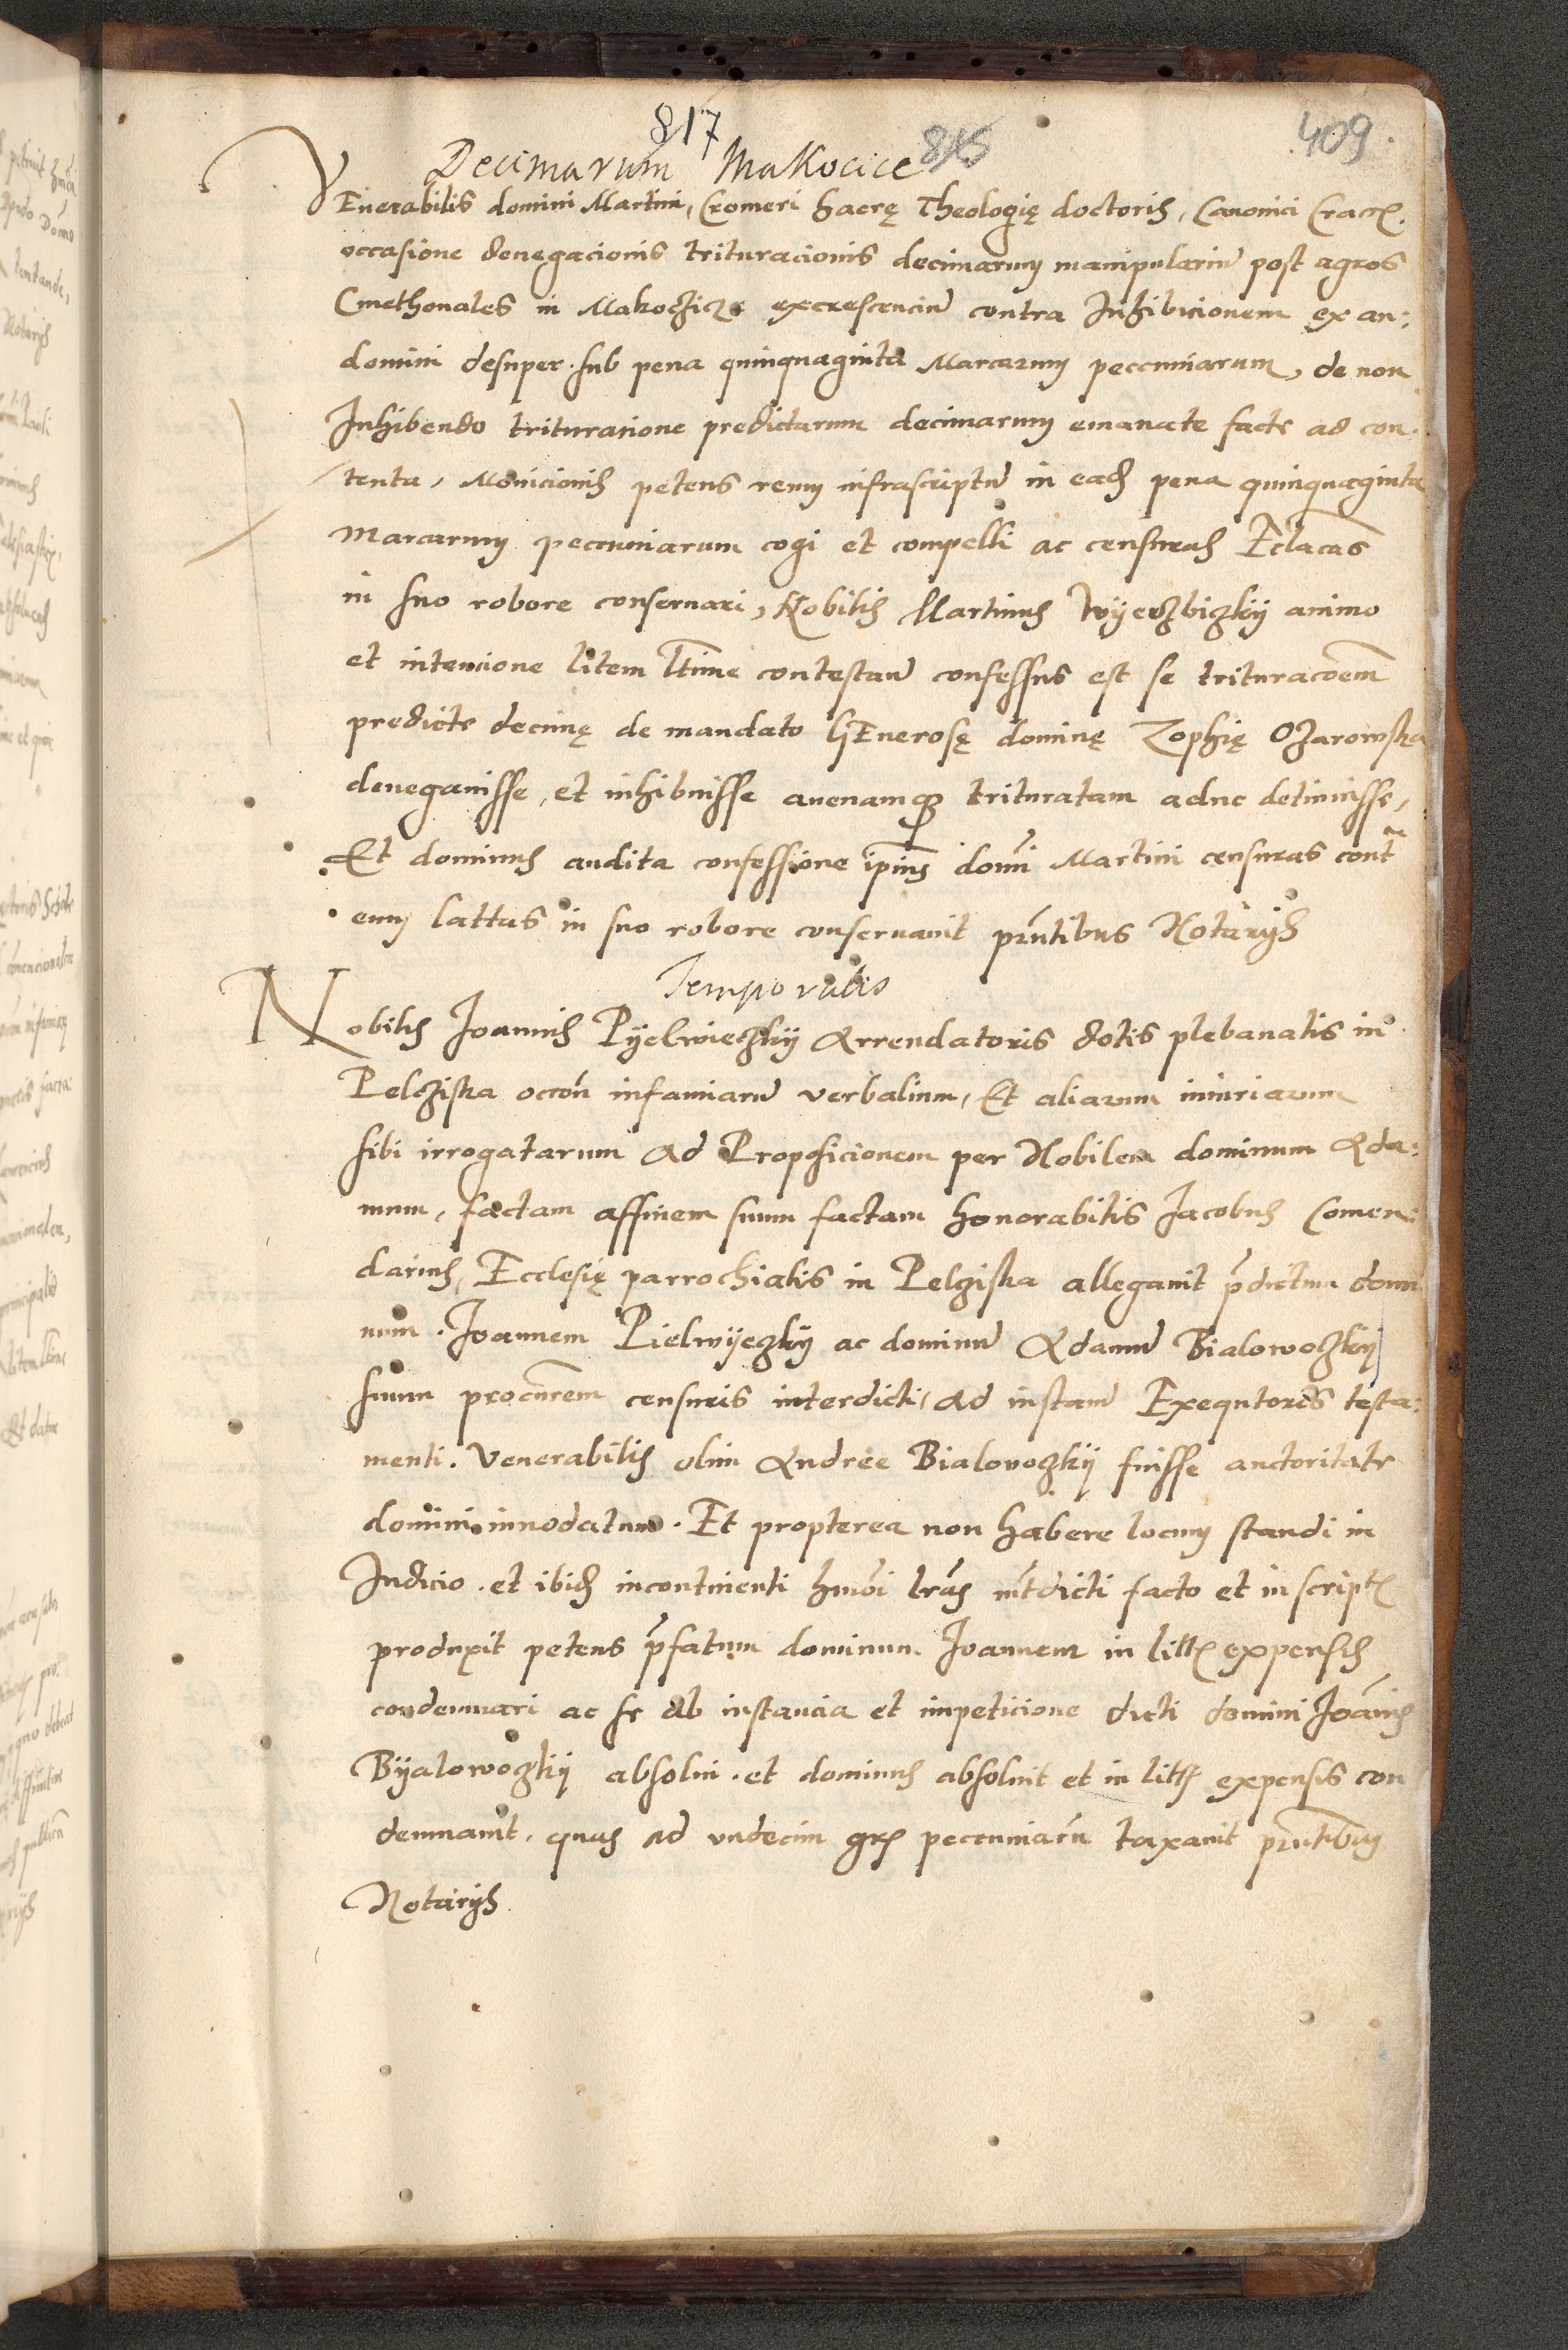 817
815
409
Decimarum Makocice
VEnerabilis domini Martini, Cromeri Sacrę Theologię doctoris, Canonici Cracc.
occasione denegacionis trituracionis decimarum manipularium post agros
Cmethonales in Makoczicze excrescencium contra Inhibicionem ex an:
domini desuper. sub pena quinquaginta Marcarum peccuniarum, de non
Inhibendo trituratione predictarum decimarum emanate facte ad con.
tenta, Monicionis petens reum infrascriptum in eadem pena quinquaginta
Marcarum peccuniarum cogi et compelli ac censuras Ecclacas
in suo robore conservari, Nobilis Martinus Wyerzbiczkij animo
et intencione litem lttime contestand confessus est se trituracoem
predicte decimę de mandato GEnerosę dominę Zophię Ozarowska
denegauisse, et inhibuisse auenamque trituratam adhuc detinuisse,
Et dominus audita confessione ipius domi Martini censuras cont
eum lattas in suo robore conseruauit pntibus Notarijs
Temporalis
Nobilis Joannis Pyelwieczkij Arrendatoris dotis plebanalis in
Pelcziska occon infamiarum verbalium, Et aliarum iniuriarum
sibi irrogatarum Ad Proposicionem per Nobilem dominum Ada:
mum, factam affinem suum factam honorabilis Jacobus Comen:
darius, Ecclesię parrochialis in Pelziska allegauit pdictum domi
num. Joannem Pielwyeczkij ac dominum Adamum Bialowoczkij
suum procurem censuris interdicti, Ad instam Exequtoris testa:
menti. Venerabilis olim Andree Bialowoczkij fuisse auctoritate
domini innodatum. Et propterea non habere locum standi in
Judicio. et ibidem incontinenti hmoi lras intdicti facto et in scriptis
produxit petens pfatum dominum Joannem in litis expensis
condemnari ac se ab instancia et impeticione dicti domini Joannis
Byalowoczkij absolui. et dominus absoluit et in litis expensis con
demnauit. quas ad undecim gros peccuniarum taxauit pntibus
Notarijs.